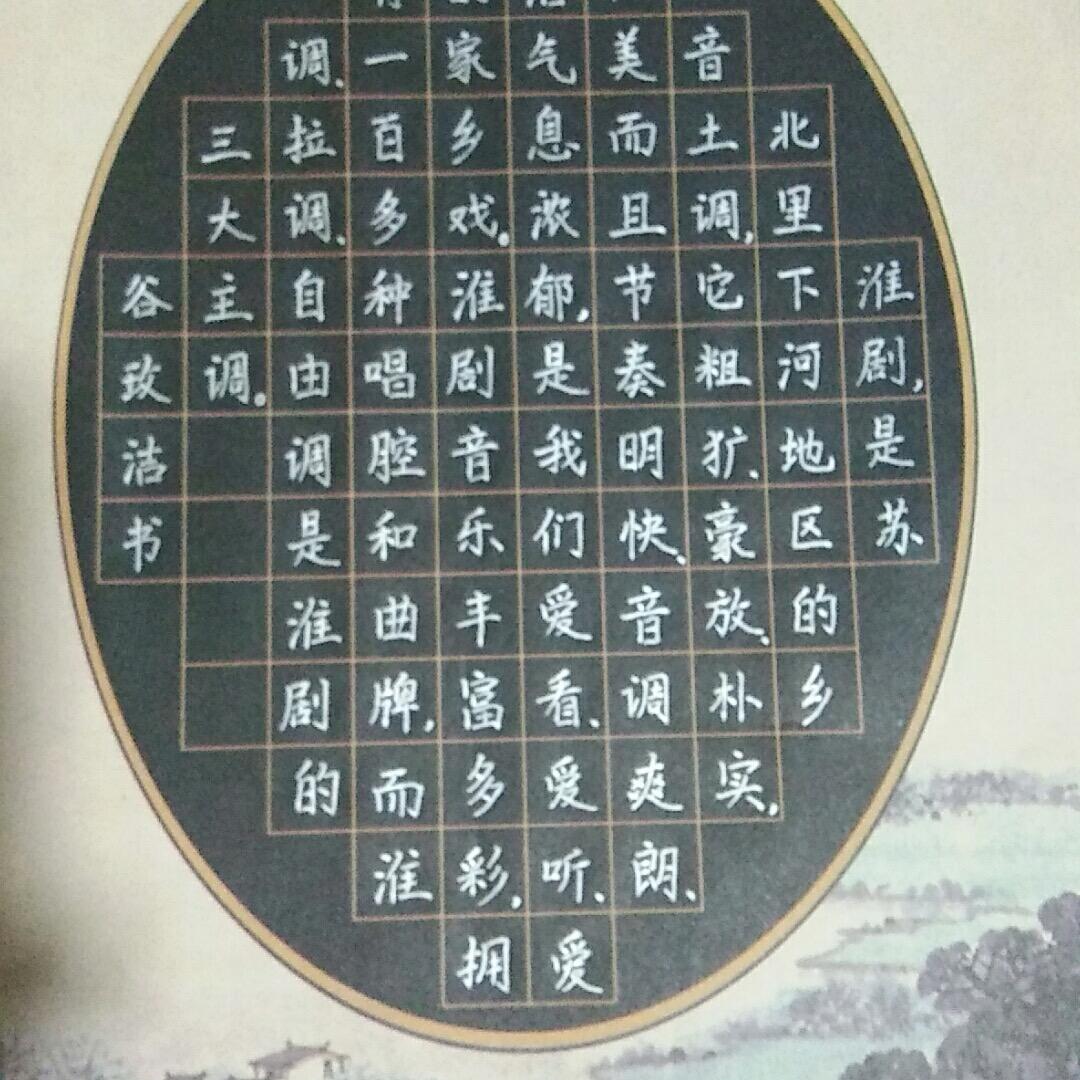 淮剧,是苏
北里下河地区的乡
音土调,它粗犷、豪放、朴实,
美而且节奏明快、音调爽朗、
活气息浓郁,是我们爱看、爱听、爱
的家乡戏。淮剧音乐丰富多彩,拥
有一百多种唱腔和曲牌,而淮
调、拉调、自由调是淮剧的
三大主调。
谷致洁书